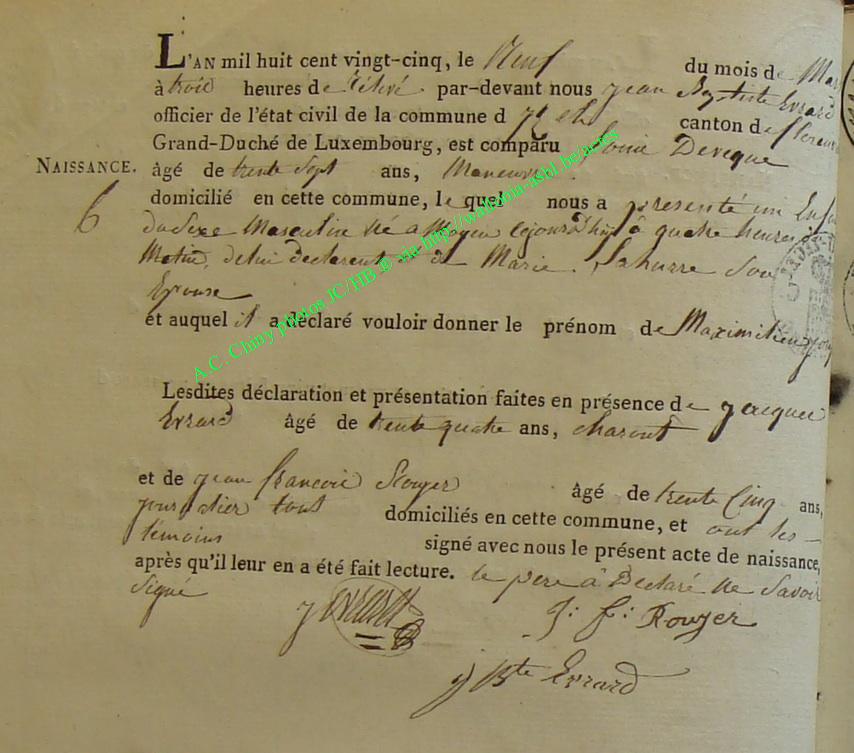 L'AN mil huit cent vingt-cinq, le Neuf du mois de Mars
à trois heures de relevé par-devant nous jean Baptiste Evrard
officier de l'état civil de la commune d canton de florenville
Grand-Duché de Luxembourg, est comparu Deveque
NAISSANCE.
âgé de trente Sept ans, Maneuvre
domicilié en cette commune, le quel nous a presenté un Enfant
6
du Sexe Masculin né a Moyen cejourd'huy à quatre heures du
Matin, de lui declarent et de Marie Lahurre Son
Epouse
et auquel il a déclaré vouloir donner le prénom de Maximilien
A.C. Chiny photos JC/HB ® via http://wallonia-asbl.be/actes
Lesdites déclaration et présentation faites en présence de jacques
Evrard âgé de trente quatre ans, charont
et de jean francois Rouyer âgé de trente Cinq ans,
tous domiciliés en cette commune, et ont les
témoins signé avec nous le présent acte de naissance,
après qu'il leur en a été fait lecture. le pere a Declaré ne Savoir
Signé
J Evrard
J: f: Rouyer
J Bte Evrard